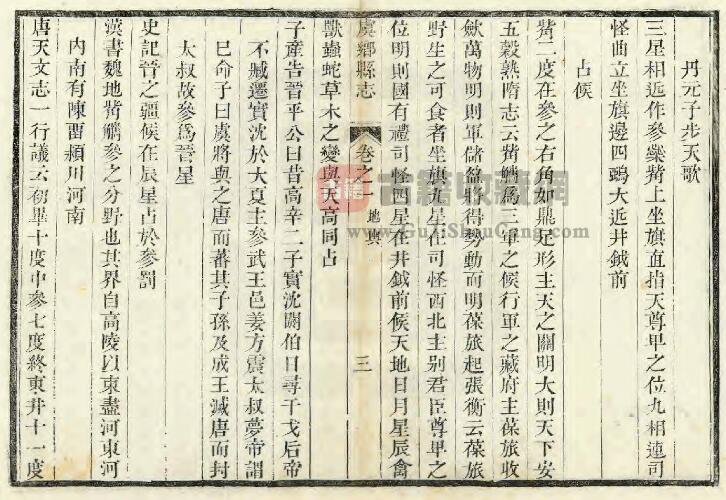 丹元子步天歌
三星相近作參蘂觜上坐旗直指天尊卑之位九相連司
怪曲立坐旗邊四鴉大近井鉞前
占候
觜二度在參之右角如鼎足形主天之關明大則天下安
五穀熟隋志云觜觿爲三軍之候行軍之藏府主葆旅收
斂萬物明則軍儲盈將得勢動而明葆旅起張衡云葆旅
野生之可食者坐旗九星在司怪西北主别君臣尊卑之
位明則國有禮司怪四星在井鉞前候天地日月星辰禽
虞鄉縣志
卷之一 地輿
三
獸蟲蛇草木之變與天高同占
子產告晉平公曰昔高辛二子實沈閼伯日尋干戈后帝
不臧遷實沈於大夏主參武王邑姜方震太叔夢帝謂
已命子曰虞將與之唐而蕃其子孫及成王滅唐而封
大叔故參爲晉星
史記晉之疆候在辰星占於參罰
漢書魏地觜觿參之分野也其界自高陵以東盡河東河
內南有陳畱潁川河南
唐天文志一行議云初畢十度中參七度終東井十一度
古籍收藏網
www.GuJiShouCang.com